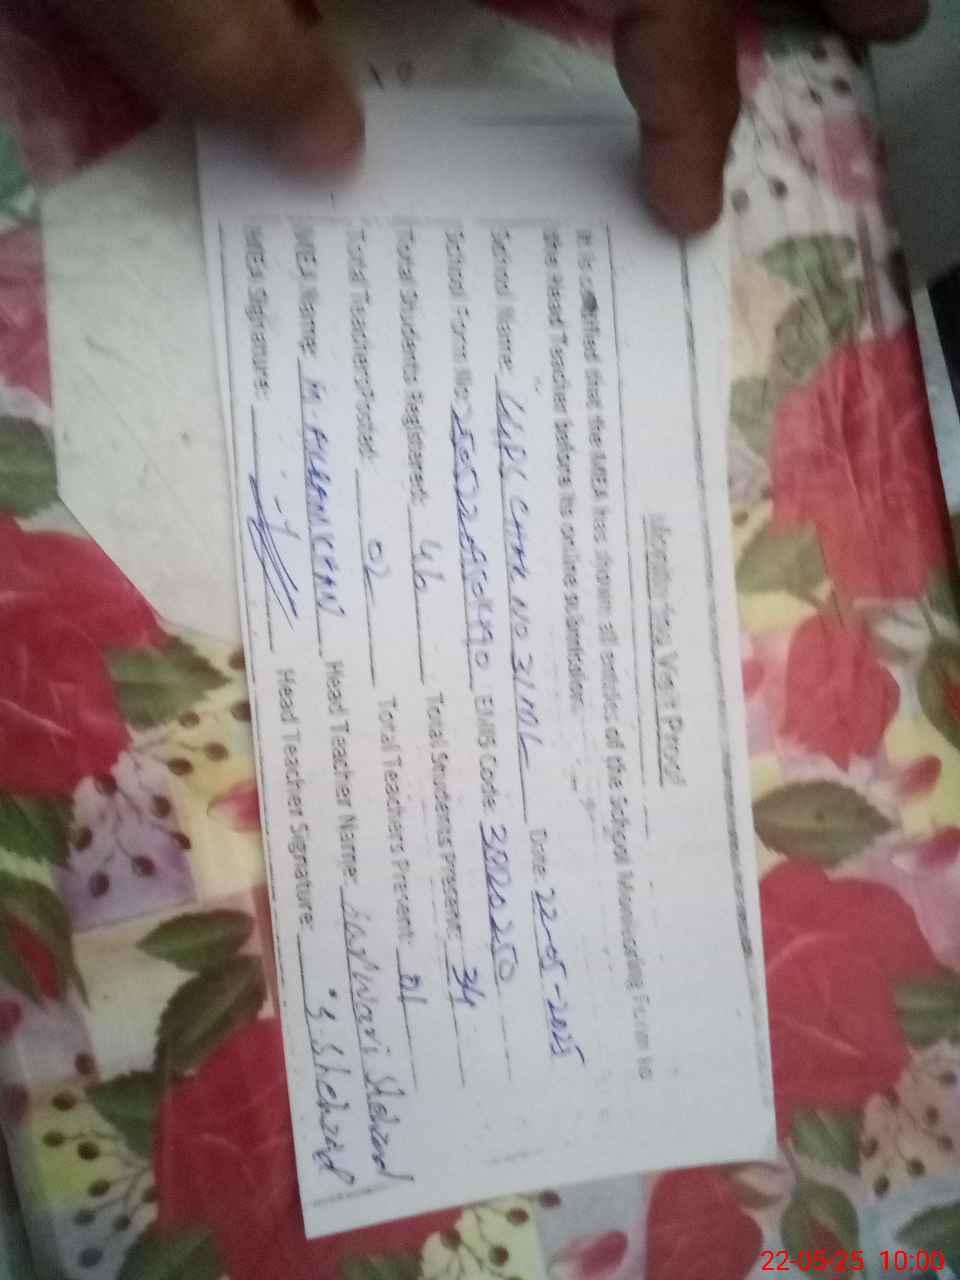 Monitoring Visit Proof
It is certified that the MEA has shown all entries of the School Monitoring Form to
the Head Teacher before its online submission.
School Name: CHAK NO 31 M/L Date: 22-05-2025
School Form No: EMIS Code: 32020250
Total Students Registered: 46 Total Students Present: 34
Total Teachers Posted: 02 Total Teachers Present: 01
MEA Name: KHAN Head Teacher Name: Shehzad
MEA Signature: Head Teacher Signature: Shehzad
22-05-25 10:00